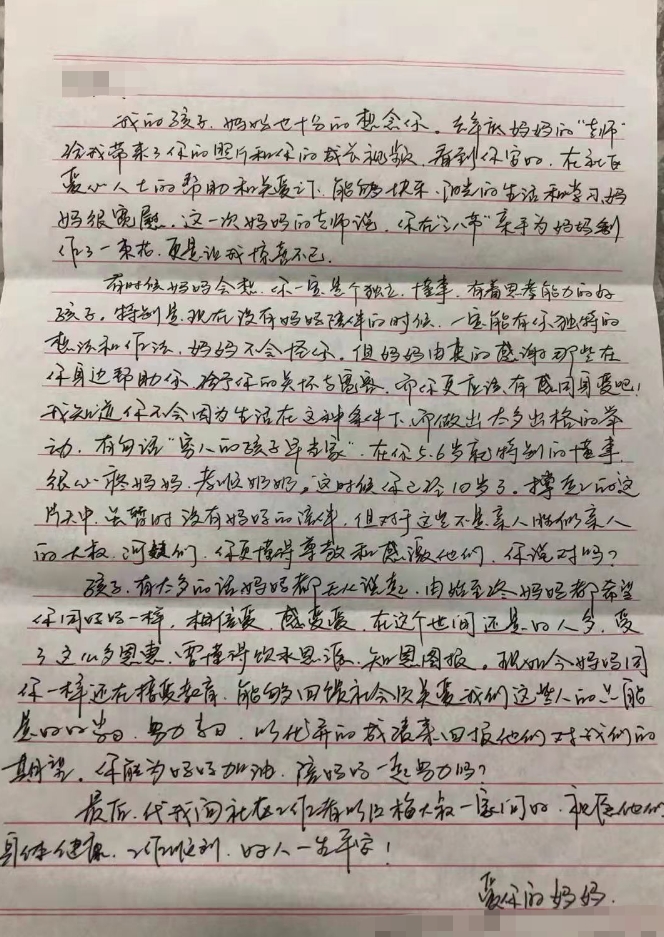 我的孩子，妈妈也十分的想念你。去年底妈妈的“老师”
给我带来了你的照片和你的成长视频，看到你宝的，在社区
爱心人士的帮助和关爱下，能够快乐、阳光的生活和学习妈
妈很宽慰。这一次妈妈的老师说，你在“三八节”亲手为妈妈制
作了一束花，更是让我惊喜不已。
有时候妈妈会想，你一定是个独立、懂事、有着思考能力的好
孩子。特别是，现在没有妈妈陪伴的时候，一定能有你独特的
想法和作法，妈妈不会怪你。但妈妈由衷的感谢那些在
你身边帮助你，给予你的关怀与宽容，而你更应该有感同身受吧！
我知道你不会因为生活在这种条件下，而做出太多出格的举
动，有句话“穷人的孩子早当家”，在你5.6岁就特别的懂事
很心疼妈妈，孝顺奶奶。这时候你已经10岁了。撑在的这
片天中，虽暂时没有妈妈的陪伴，但对于这些不是亲人胜似亲人
的大叔、阿姨们，你更懂得尊敬和感激他们，你说对吗？
孩子，有太多的话妈妈都无从说起，由始至终妈妈都希望
你同妈妈一样，相信爱，感受爱，在这个世间还是好人多，受
了这么多恩惠，要懂得饮水思源、知恩图报。现如今妈妈同
你一样还在接受教育，能够回馈社会及关爱我们这些人的只能
是好好学习、努力，以优异的成绩来回报他们对我们的
期望。你能为妈妈加油，陪妈妈一起努力吗？
最后，代我向社区工作者以及杨大叔一家问好，祝愿他们
身体健康、工作顺利，好人一生平安！
爱你的妈妈.